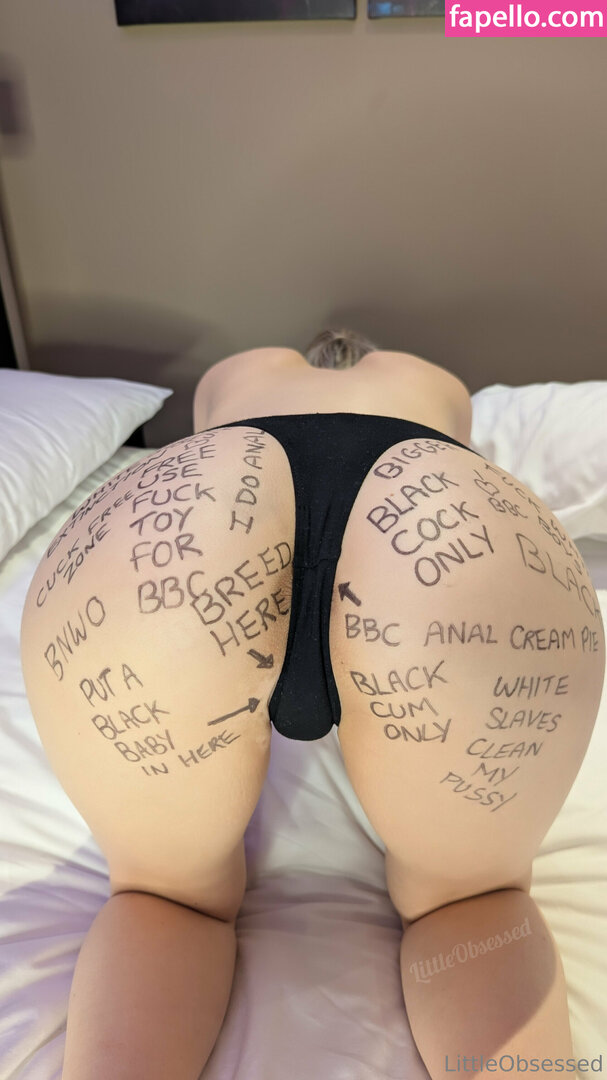 fapello.com
FREE
USE
FUCK
TOY
FOR
BBC
I DO ANAL
CUCK FREE
ZONE
BNWO
BREED
HERE
PUT A
BLACK
BABY
IN HERE
BIGGER
BLACK
COCK
ONLY
BBC
BLACK
BBC ANAL CREAM PIE
BLACK
CUM
ONLY
WHITE
SLAVES
CLEAN
MY
PUSSY
LittleObsessed
LittleObsessed